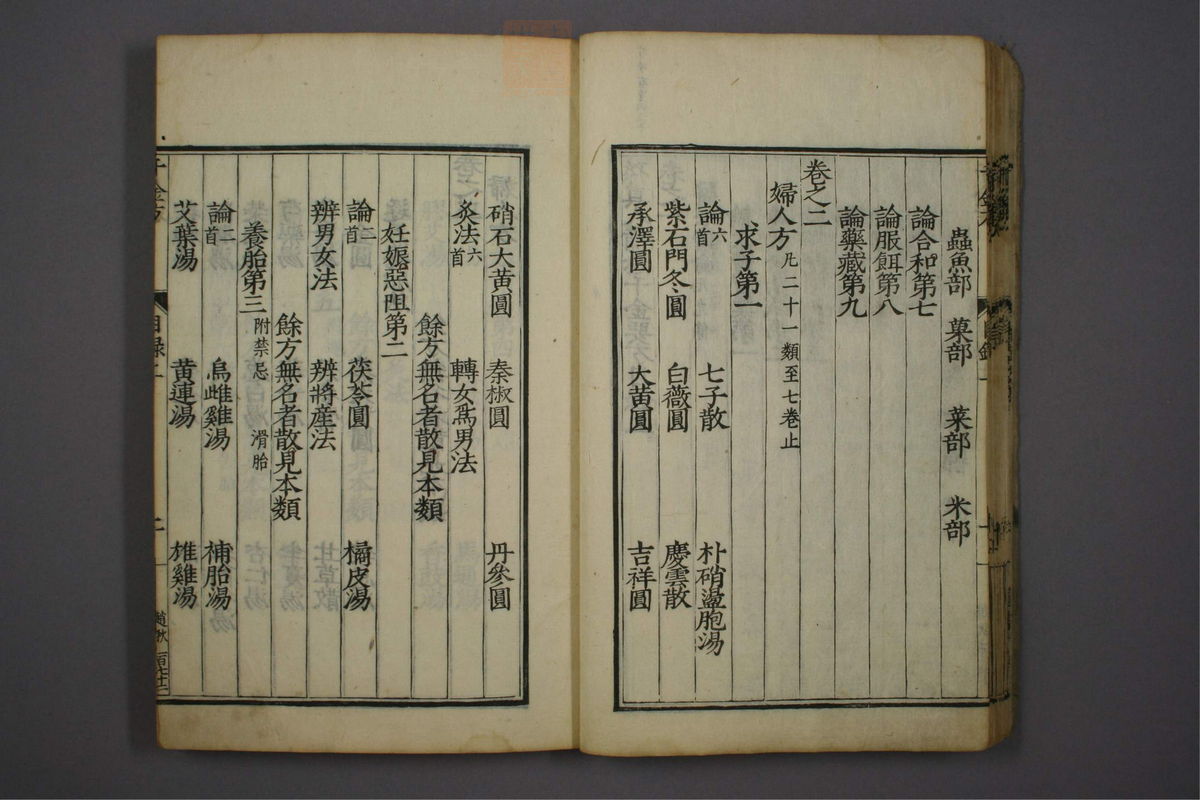 蟲魚部 菓部 菜部 米部
論合和第七
論服餌第八
論藥藏第九
卷之二
婦人方 凡二十一類至七卷止
求子第一
論六首 七子散 朴硝盪胞湯
紫石門冬圓 白薇圓 慶雲散
承澤圓 大黃圓 吉祥圓
硝石大黃圓 秦椒圓 丹參圓
灸法六首 轉女爲男法
餘方無名者散見本類
妊娠惡阻第二
論二首 茯苓圓 橘皮湯
辨男女法 辨將産法
餘方無名者散見本類
養胎第三 附禁忌 滑胎
論二首 烏雌雞湯 補胎湯
艾葉湯 黃連湯 雄雞湯
千金方 目録 二 趙秋